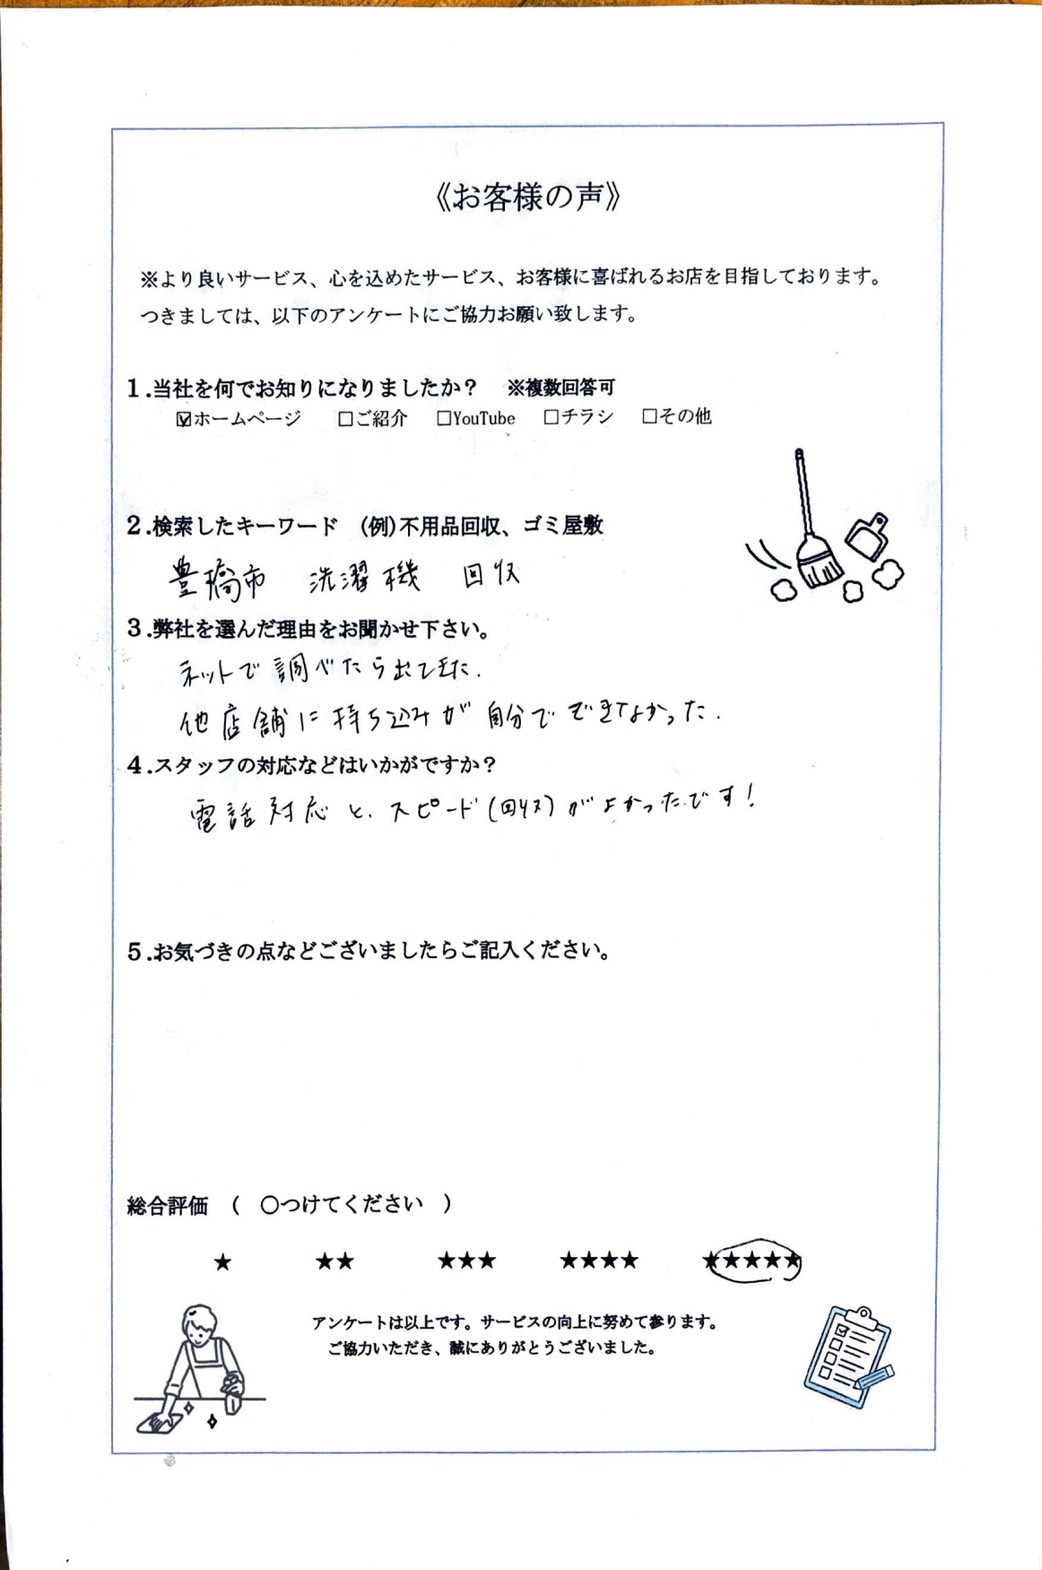 《お客様の声》
※より良いサービス、心を込めたサービス、お客様に喜ばれるお店を目指しております。
つきましては、以下のアンケートにご協力お願い致します。
1.当社を何でお知りになりましたか？ ※複数回答可
☑ホームページ □ご紹介 □YouTube □チラシ □その他
2.検索したキーワード (例)不用品回収、ゴミ屋敷
豊橋市 洗濯機 回収
3.弊社を選んだ理由をお聞かせ下さい。
ネットで調べたら出てきた.
他店舗に持ち込みが自分でできなかった.
4.スタッフの対応などはいかがですか？
電話対応と、スピード(回収)がよかったです！
5.お気づきの点などございましたらご記入ください。
総合評価 ( 〇つけてください )
★ ★★ ★★★ ★★★★ ★★★★★
アンケートは以上です。サービスの向上に努めて参ります。
ご協力いただき、誠にありがとうございました。